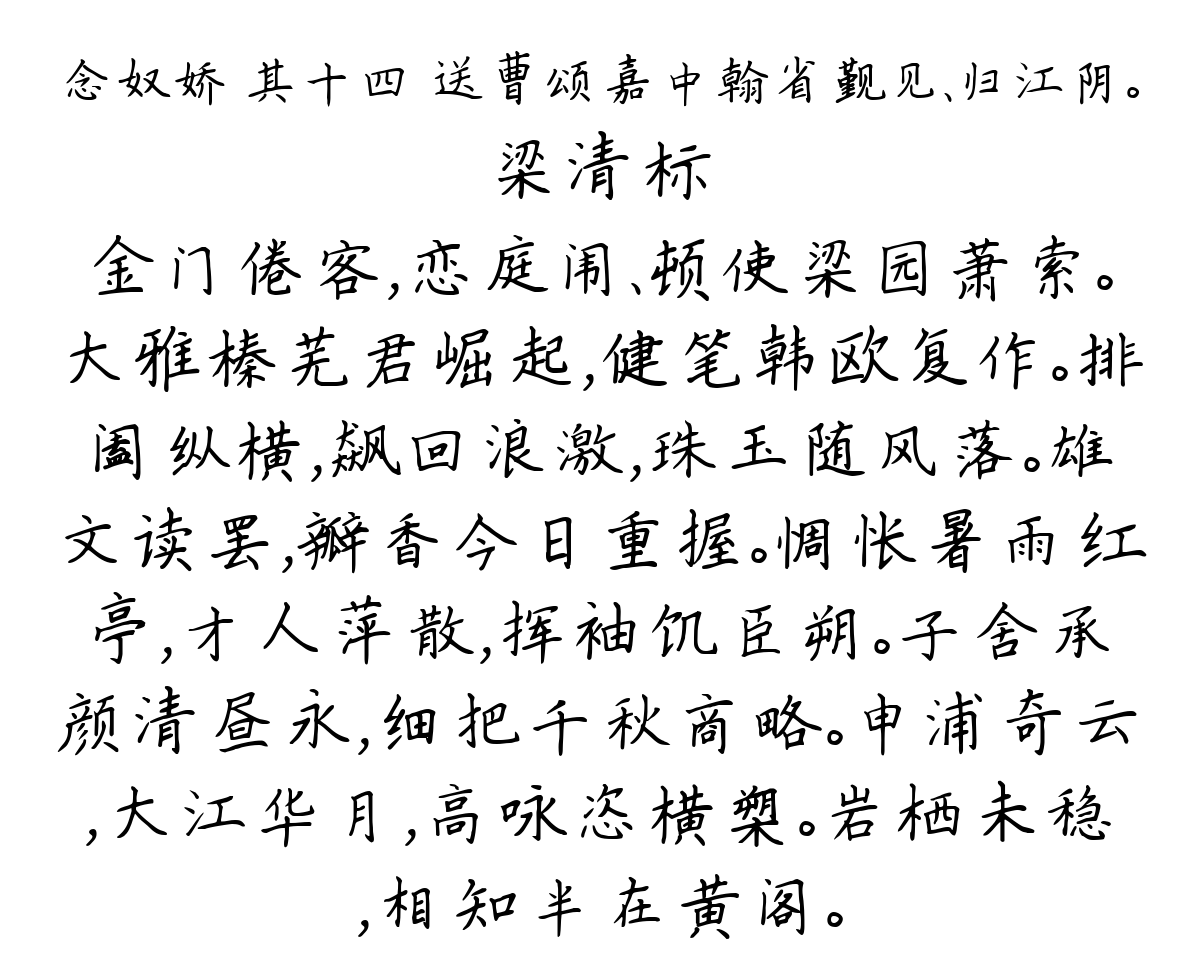 念奴娇 其十四 送曹颂嘉中翰省觐见、归江阴。
梁清标
金门倦客,恋庭闱、顿使梁园萧索。
大雅榛芜君崛起,健笔韩欧复作。排
阖纵横,飙回浪激,珠玉随风落。雄
文读罢,瓣香今日重握。惆怅暑雨红
亭,才人萍散,挥袖饥臣朔。子舍承
颜清昼永,细把千秋商略。申浦奇云
,大江华月,高咏恣横槊。岩栖未稳
,相知半在黄阁。